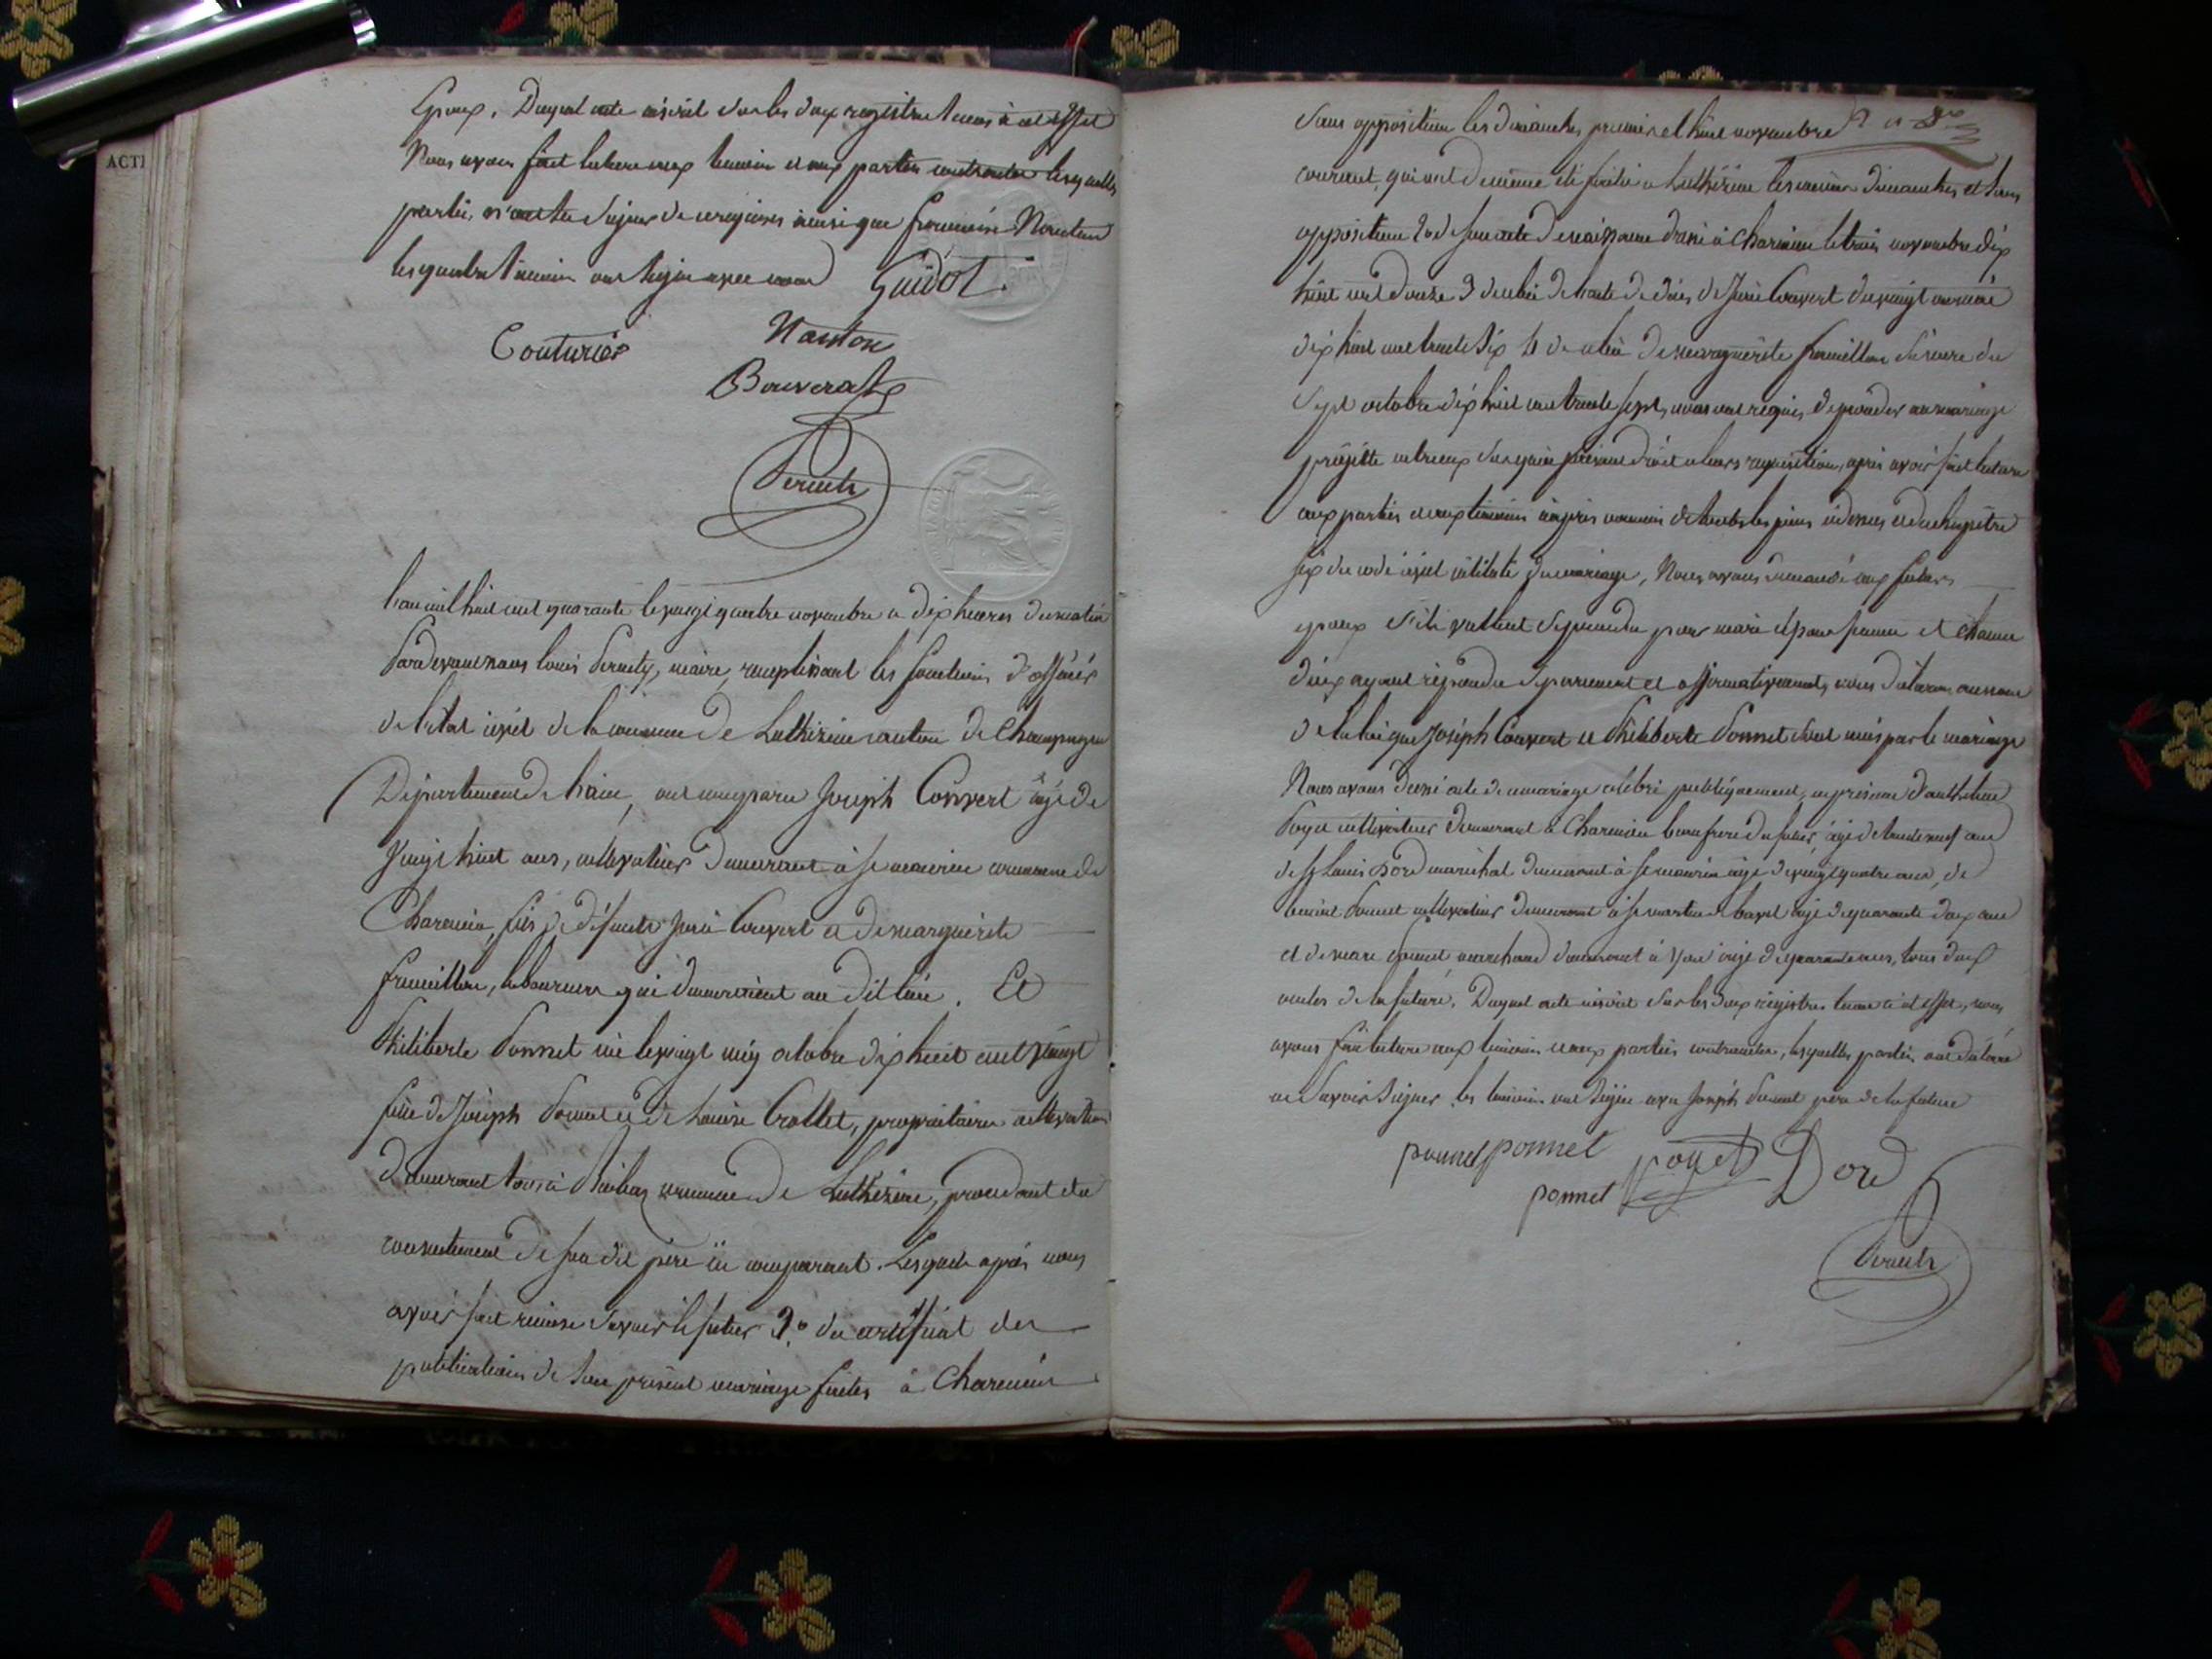 ACTE
Epoux. Duquel acte inscrit sur les deux registres tenus à cet effet
Nous avons fait lecture aux temoins et aux parties contractantes lesquelles
parties, de ce requises ainsi que françois Nanton
les quatre temoins ont signé avec nous Guidot
Couturier Nanton
Bouverat
Perueti
L'an mil huit cent quarante le vingt quatre novembre a dix heures du matin
Pardevant nous Louis maire, remplissant les fonctions d'officier
de l'état civil de la commune de Luthézieu canton de Champagne
Département de l'ain, ont comparu Joseph Convert âgé de
Vingt huit ans, cultivateur demeurant à commune de
Charancin, fils de défunts Convert et de marguerite
laboureurs qui demeuroient au dit lieu. Et
Philiberte Ponnet née le vingt octobre dix huit cent vingt
fille de Joseph Ponnet et de Louise Crollet, propriétaires cultivateurs
demeurant tous à commune de Luthézieu, procedant du
consentement de son dit père ici comparant. Lesquels après nous
avoir fait remise savoir le futur 1.° du certificat des
publications de leur présent mariage faites à Charancin
Sans opposition les dimanches premier et huit novembre
courant, qui ont de même été faites a Luthézieu les mêmes dimanches et sans
opposition 2° de son acte de naissance dressé à Charancin le trois novembre dix
huit cent douze 3 de celui de décès de Convert du vingt
dix huit cent trente six 4 de celui de marguerite sa mere du
Sept octobre dix huit cent trente sept, nous ont requis de procéder au mariage
projetté entreux Sur quoi faisant droit a leurs requisitions, après avoir fait lecture
aux parties et aux temoins ci après nommés de toutes les pièces et du chapitre
six du code civil intitulé du mariage, Nous avons demandé aux futurs
epoux s'ils veullent se prendre pour mari et pour femme et chacun
d'eux ayant répondu séparement et affirmativement, nous déclarons au nom
de la loi que Joseph Convert et Philiberte Ponnet sont unis par le mariage
Nous avons dressé acte de ce mariage célébré publiquement, en présence d'anthelme
Poyet cultivateur demeurant à Charancin beau frere du futur, âgé de trente neuf ans
de Louis Dord maréchal demeurant à âgé de vingt quatre ans, de
Ponnet cultivateur demeurant à St martin de bavel âgé de quarante deux ans
et de marc Ponnet marchand demeurant à âgé de quarante ans, tous deux
oncles de la future. Duquel acte inscrit sur les deux registres tenus à cet effet, nous
avons fait lecture aux temoins et aux parties contractantes, lesquelles parties ont déclaré
ne savoir signer les temoins ont signé avec Joseph Ponnet père de la future
ponnet ponnet poyet Dord
ponnet
Perueti